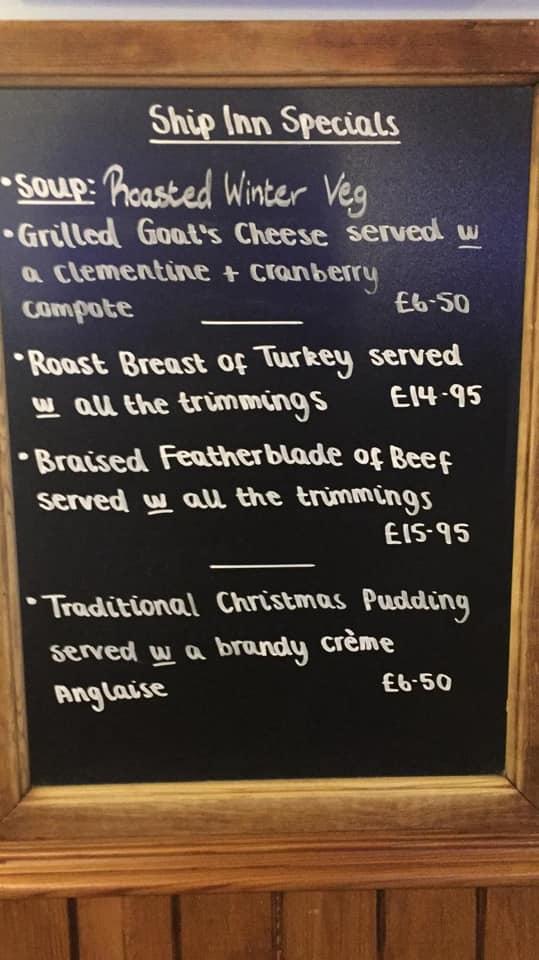 Ship Inn Specials
• Soup: Roasted Winter Veg
• Grilled Goat's Cheese served w
a clementine + cranberry
compote £6-50
• Roast Breast of Turkey served
w all the trimmings £14-95
• Braised Featherblade of Beef
served w all the trimmings
£15-95
• Traditional Christmas Pudding
served w a brandy crème
Anglaise £6-50